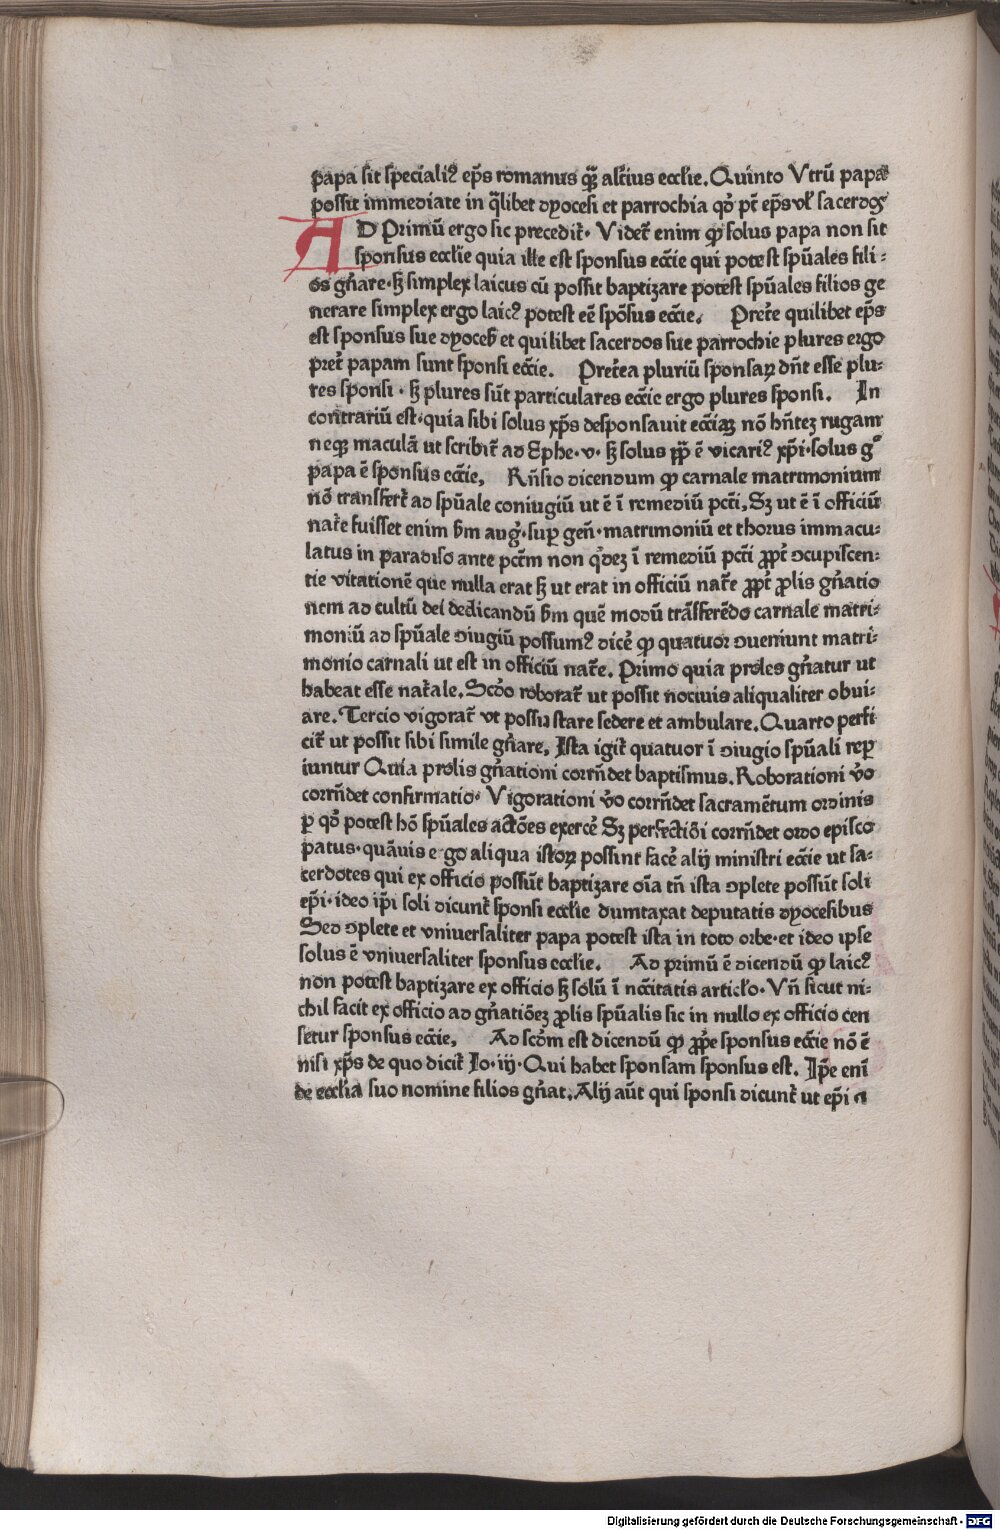 papa sit specialiꝰ ep̃s romanus qꝫ̃ alt̃ius eccl̃ie. Quinto Vtrũ papa
possit immediate in q̃libet dyocesi et parrochia qđ pt̃ ep̃s vl̃ sacerdos
AD Primũ ergo sic precedit̃. Videt̃ enim ꝙ solus papa non sit
sponsus eccl̃ie quia ille est sponsus ecc̃ie qui potest spũales fili:
os gñare. sꝫ simplex laicus cũ possit baptizare potest spũales filios ge
nerare simplex ergo laicꝰ potest eẽ spõsus ecc̃ie. Pret̃e quilibet ep̃s
est sponsus sue dyoceẽ et quilibet sacerdos sue parrochie plures ergo
pret̃ papam sunt sponsi ecc̃ie. Pret̃ea pluriũ sponsaꝝ dñt esse plu:
res sponsi. sꝫ plures sũt particulares ecc̃ie ergo plures sponsi. In
contrariũ est. quia sibi solus xp̃s desponsauit ecc̃iaꝫ nõ hñteꝫ rugam
neqꝫ maculã ut scribit̃ ad Ephe. v. sꝫ solus pp̃ ẽ vicariꝰ xp̃i. solus gͦ
papa ẽ sponsus ecc̃ie. Rñsio dicendum ꝙ carnale matrimonium
nõ transfert̃ ad spũale coniugiũ ut ẽ ĩ remediũ pcc̃i, Sꝫ ut ẽ ĩ officiũ
nat̃e fuisset enim ẜm aug̃. suꝑ geñ. matrimoniũ et thorus immacu:
latus in paradiso ante pcc̃m non q̃deꝫ ĩ remediũ pcc̃i ꝓpt̃ ↄcupiscen:
tie vitationẽ que nulla erat sꝫ ut erat in officiũ nat̃e ꝓpt̃ ꝓlis gñatio
nem ad cultũ dei dedicandũ ẜm quẽ modũ trãsferẽdo carnale matri:
moniũ ad spũale ↄiugiũ possumꝰ dicẽ ꝙ quatuor ↄueniunt matri:
monio carnali ut est in officiũ nat̃e. Primo quia proles gñatur ut
habeat esse nat̃ale. Scđo roborat̃ ut possit nociuis aliqualiter obui:
are. Tercio vigorat̃ vt possit stare sedere et ambulare. Quarto perfi
cit̃ ut possit sibi simile gñare. Ista igit̃ quatuor ĩ ↄiugio spũali reꝑ
iuntur Quia prolis gñationi corrñdet baptismus. Roborationi ṽo
corrñdet confirmatio. Vigorationi ṽo corrñdet sacramẽtum ordinis
ꝑ qđ potest hõ spũales actões exercẽ Sꝫ perfectiõi corrñdet ordo episco
patus. quãuis ergo aliqua istoꝝ possint facẽ alij ministri ecc̃ie ut sa:
cerdotes qui ex officio possũt baptizare oĩa tñ ista ↄplete possũt soli
ep̃i. ideo ip̃i soli dicunt̃ sponsi eccl̃ie dumtaxat deputatis dyocesibus
Sed ↄplete et vniuersaliter papa potest ista in toto orbe. et ideo ipse
solus ẽ vniuersaliter sponsus eccl̃ie. Ad primũ ẽ dicendũ ꝙ laicꝰ
non potest baptizare ex officio sꝫ solũ ĩ nc̃citatis articl̃o. Vñ sicut ni:
chil facit ex officio ad gñatiõeꝫ ꝓlis spũalis sic in nullo ex officio cen
setur sponsus ecc̃ie. Ad scđm est dicendũ ꝙ ꝓp̃e sponsus ecc̃ie nõ ẽ
nisi xp̃s de quo dicit̃ Io. iij. Qui habet sponsam sponsus est. Ip̃e enĩ
de eccl̃ia suo nomine filios gñat. Alij aũt qui sponsi dicunt̃ ut ep̃i a
Digitalisierung gefördert durch die Deutsche Forschungsgemeinschaft - DFG